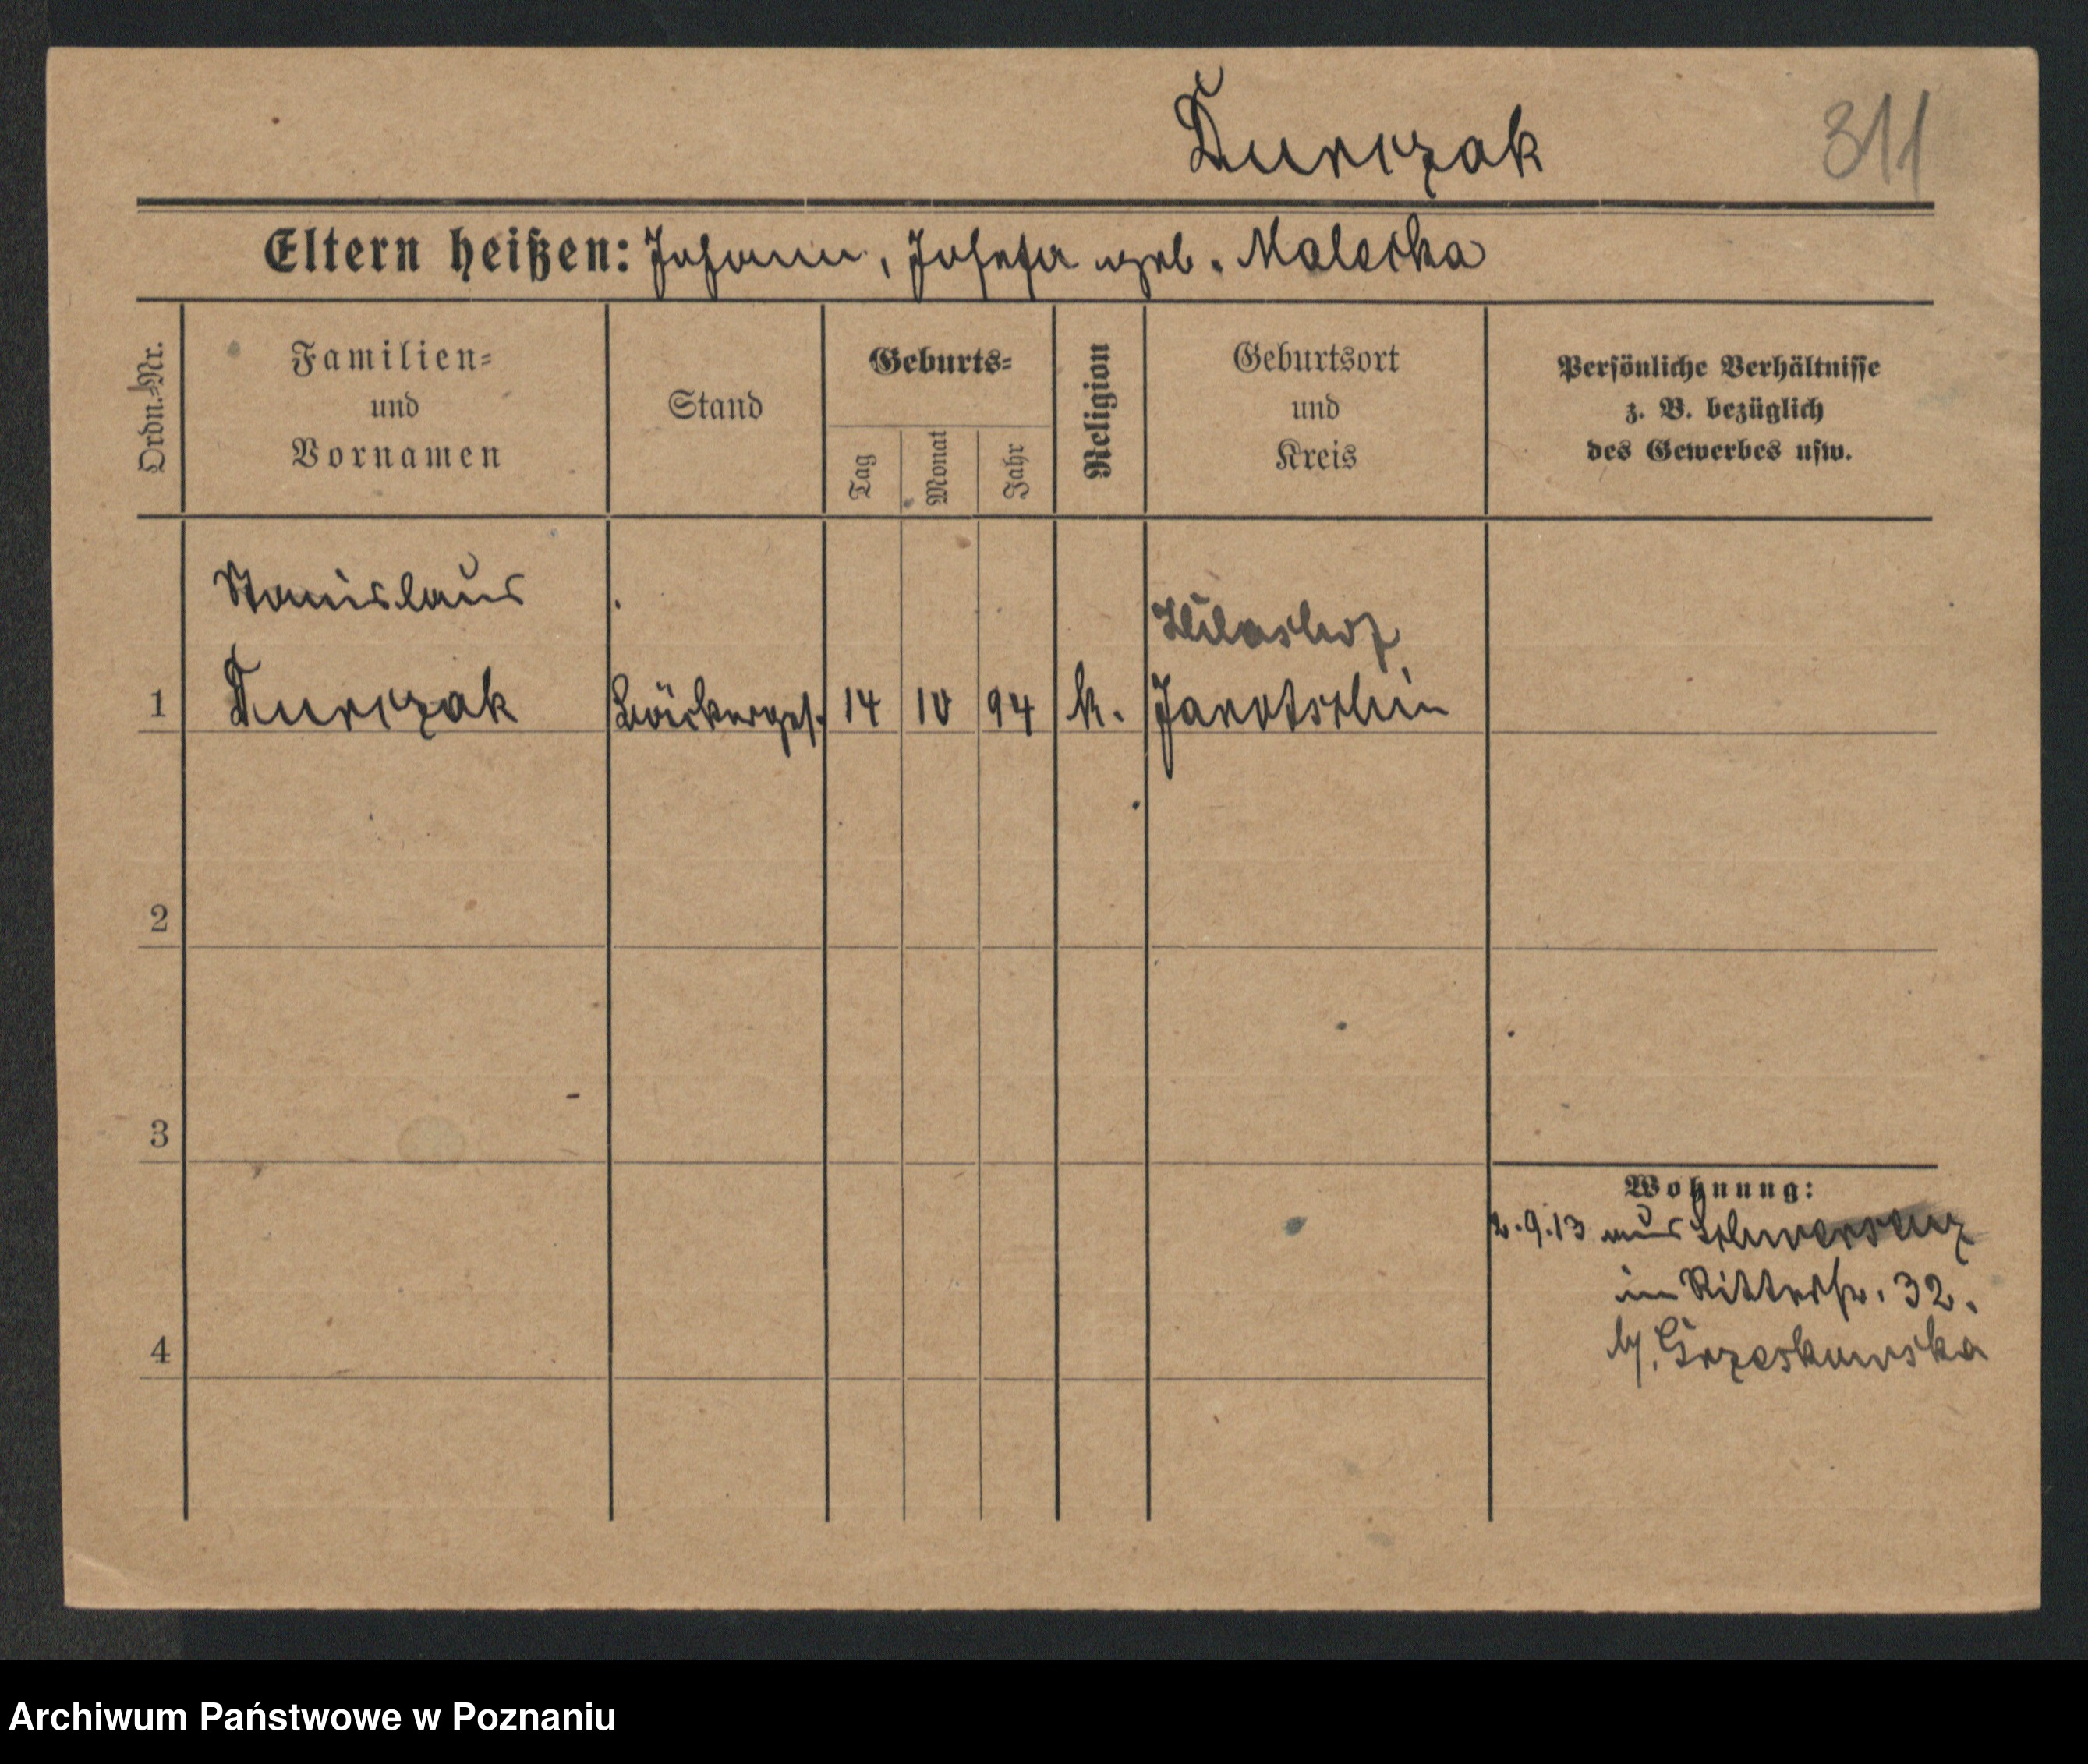 Durczak 311
Eltern heißen: Johann, Josefa geb. Malecka
Ordn.-Nr.
Familien-
und
Vornamen
Stand
Geburts-
Tag
Monat
Jahr
Religion
Geburtsort
und
Kreis
Persönliche Verhältnisse
z. B. bezüglich
des Gewerbes usw.
Stanislaus
1 Durczak Bäckerges. 14 10 94 k. Jarotschin
2
3
4
Wohnung:
2.9.13 aus Schwersenz
in Ritterstr. 32.
b/. Grzeskowska
Archiwum Państwowe w Poznaniu